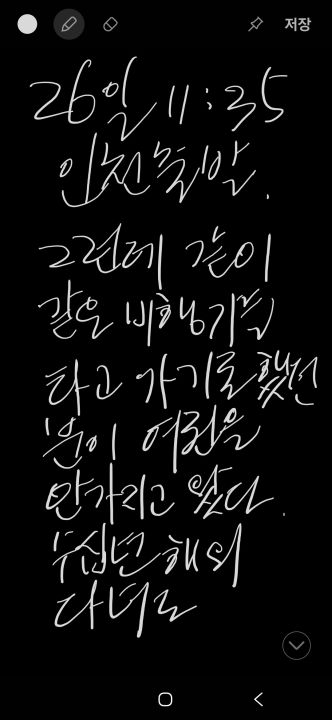 저장
26일 11:35
인천출발.
그런데 같이
같은 비행기를
타고 가기로 했던
분이 여권을
안가지고 왔다.
수십년 해외
다녀도